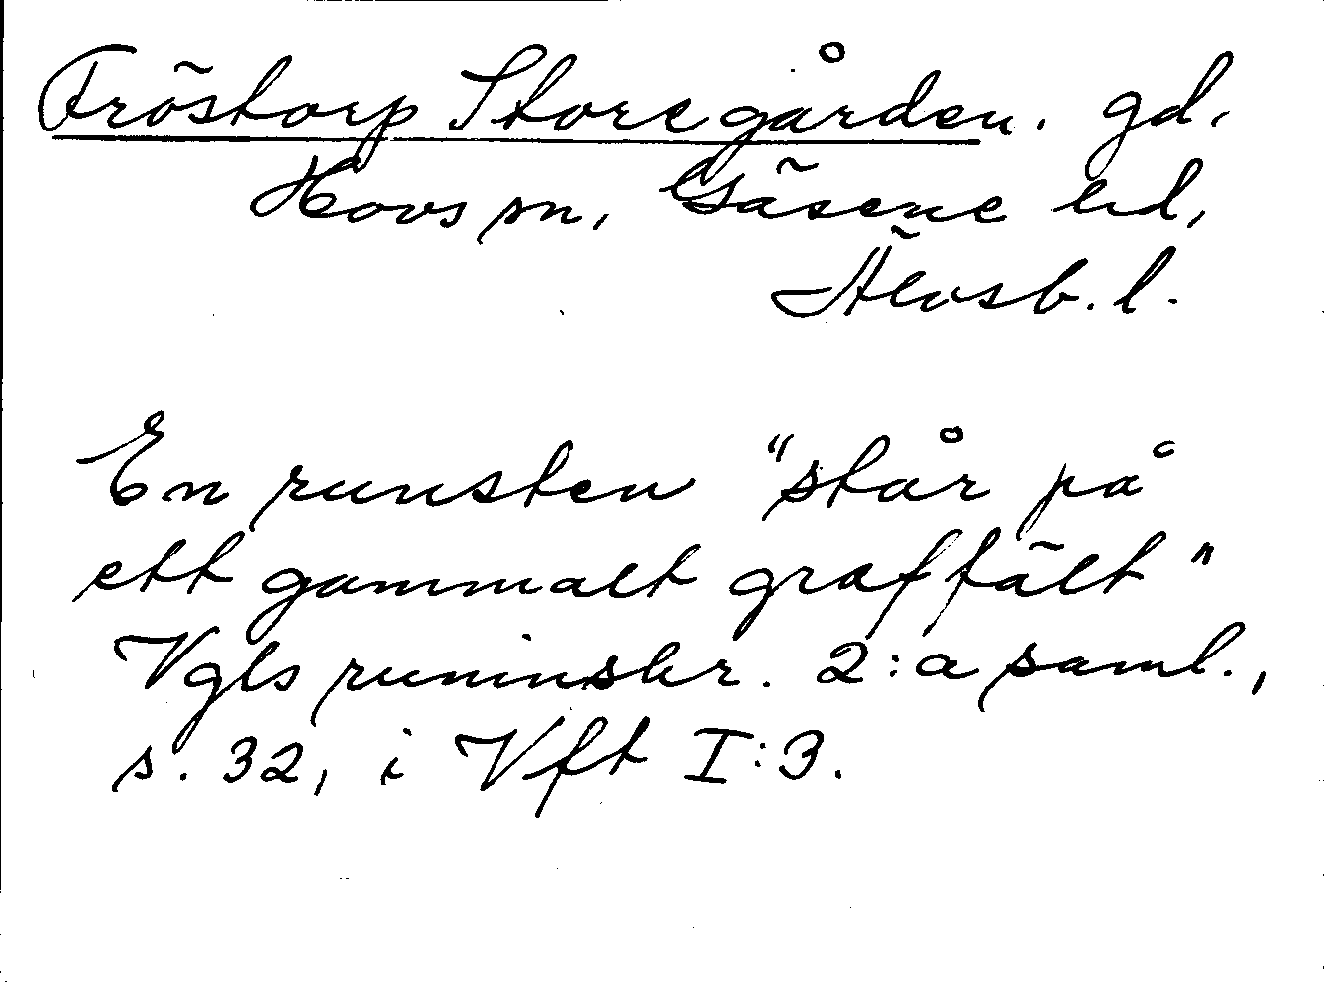 Fröstorp Storegården. gd,
Hovs sn, Gäsene hd,
Älvsb. l.
En runsten "står på
ett gammalt graffält"
Vgls runinskr. 2:a saml.,
s. 32, i Vft I:3.